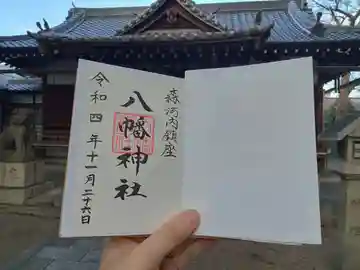 森河内鎮座
八幡神社
令和四年十一月二十六日